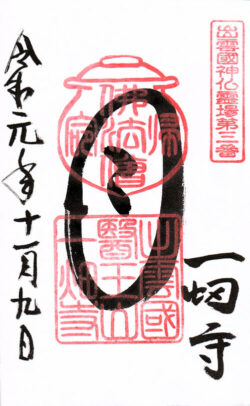 出雲國神仏霊場第三番
一畑寺
出雲國
醫王山
一畑寺
令和元年十一月九日